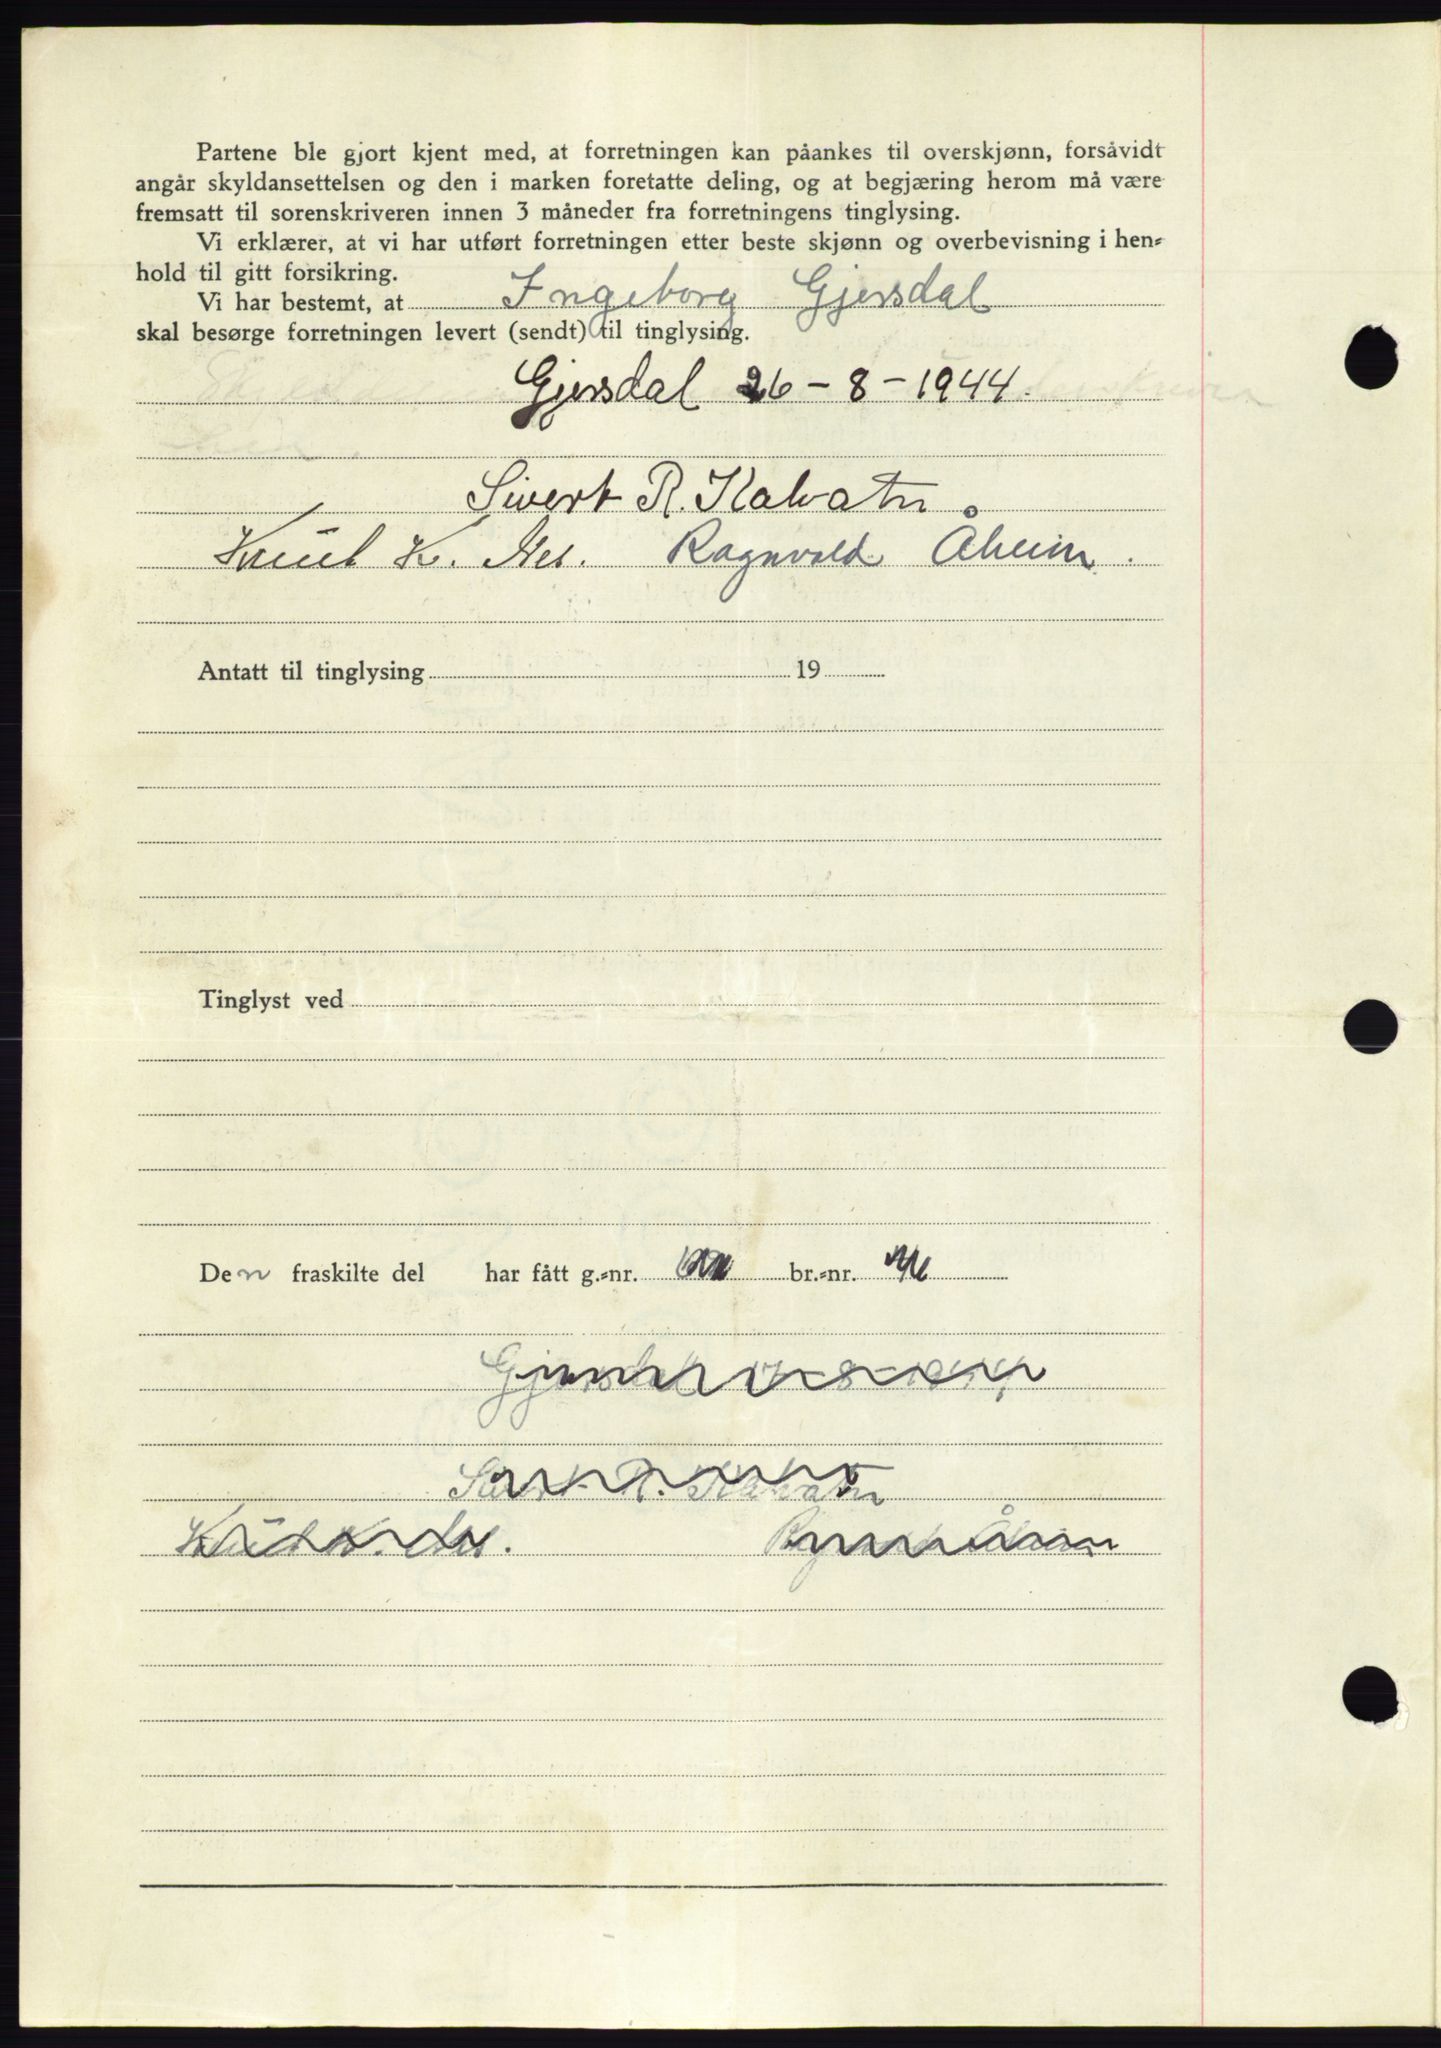 Partene ble gjort kjent med, at forretningen kan påankes til overskjønn, forsåvidt
angår skyldansettelsen og den i marken foretatte deling, og at begjæring herom må være
fremsatt til sorenskriveren innen 3 måneder fra forretningens tinglysing.
Vi erklærer, at vi har utført forretningen etter beste skjønn og overbevisning i hen-
hold til gitt forsikring.
Vi har bestemt, at Ingeborg Gjersdal
skal besørge forretningen levert (sendt) til tinglysing.
Gjersdal 26-8-1944.
Sivert R. Kalvatn
Knut K. Nes. Ragnvald Åheim.
Antatt til tinglysing 19
Tinglyst ved
Den fraskilte del har fått g.-nr. br.-nr.
Gjersdal
Sivert R. Kalvatn
Knut K. Nes. Ragnvald Åheim